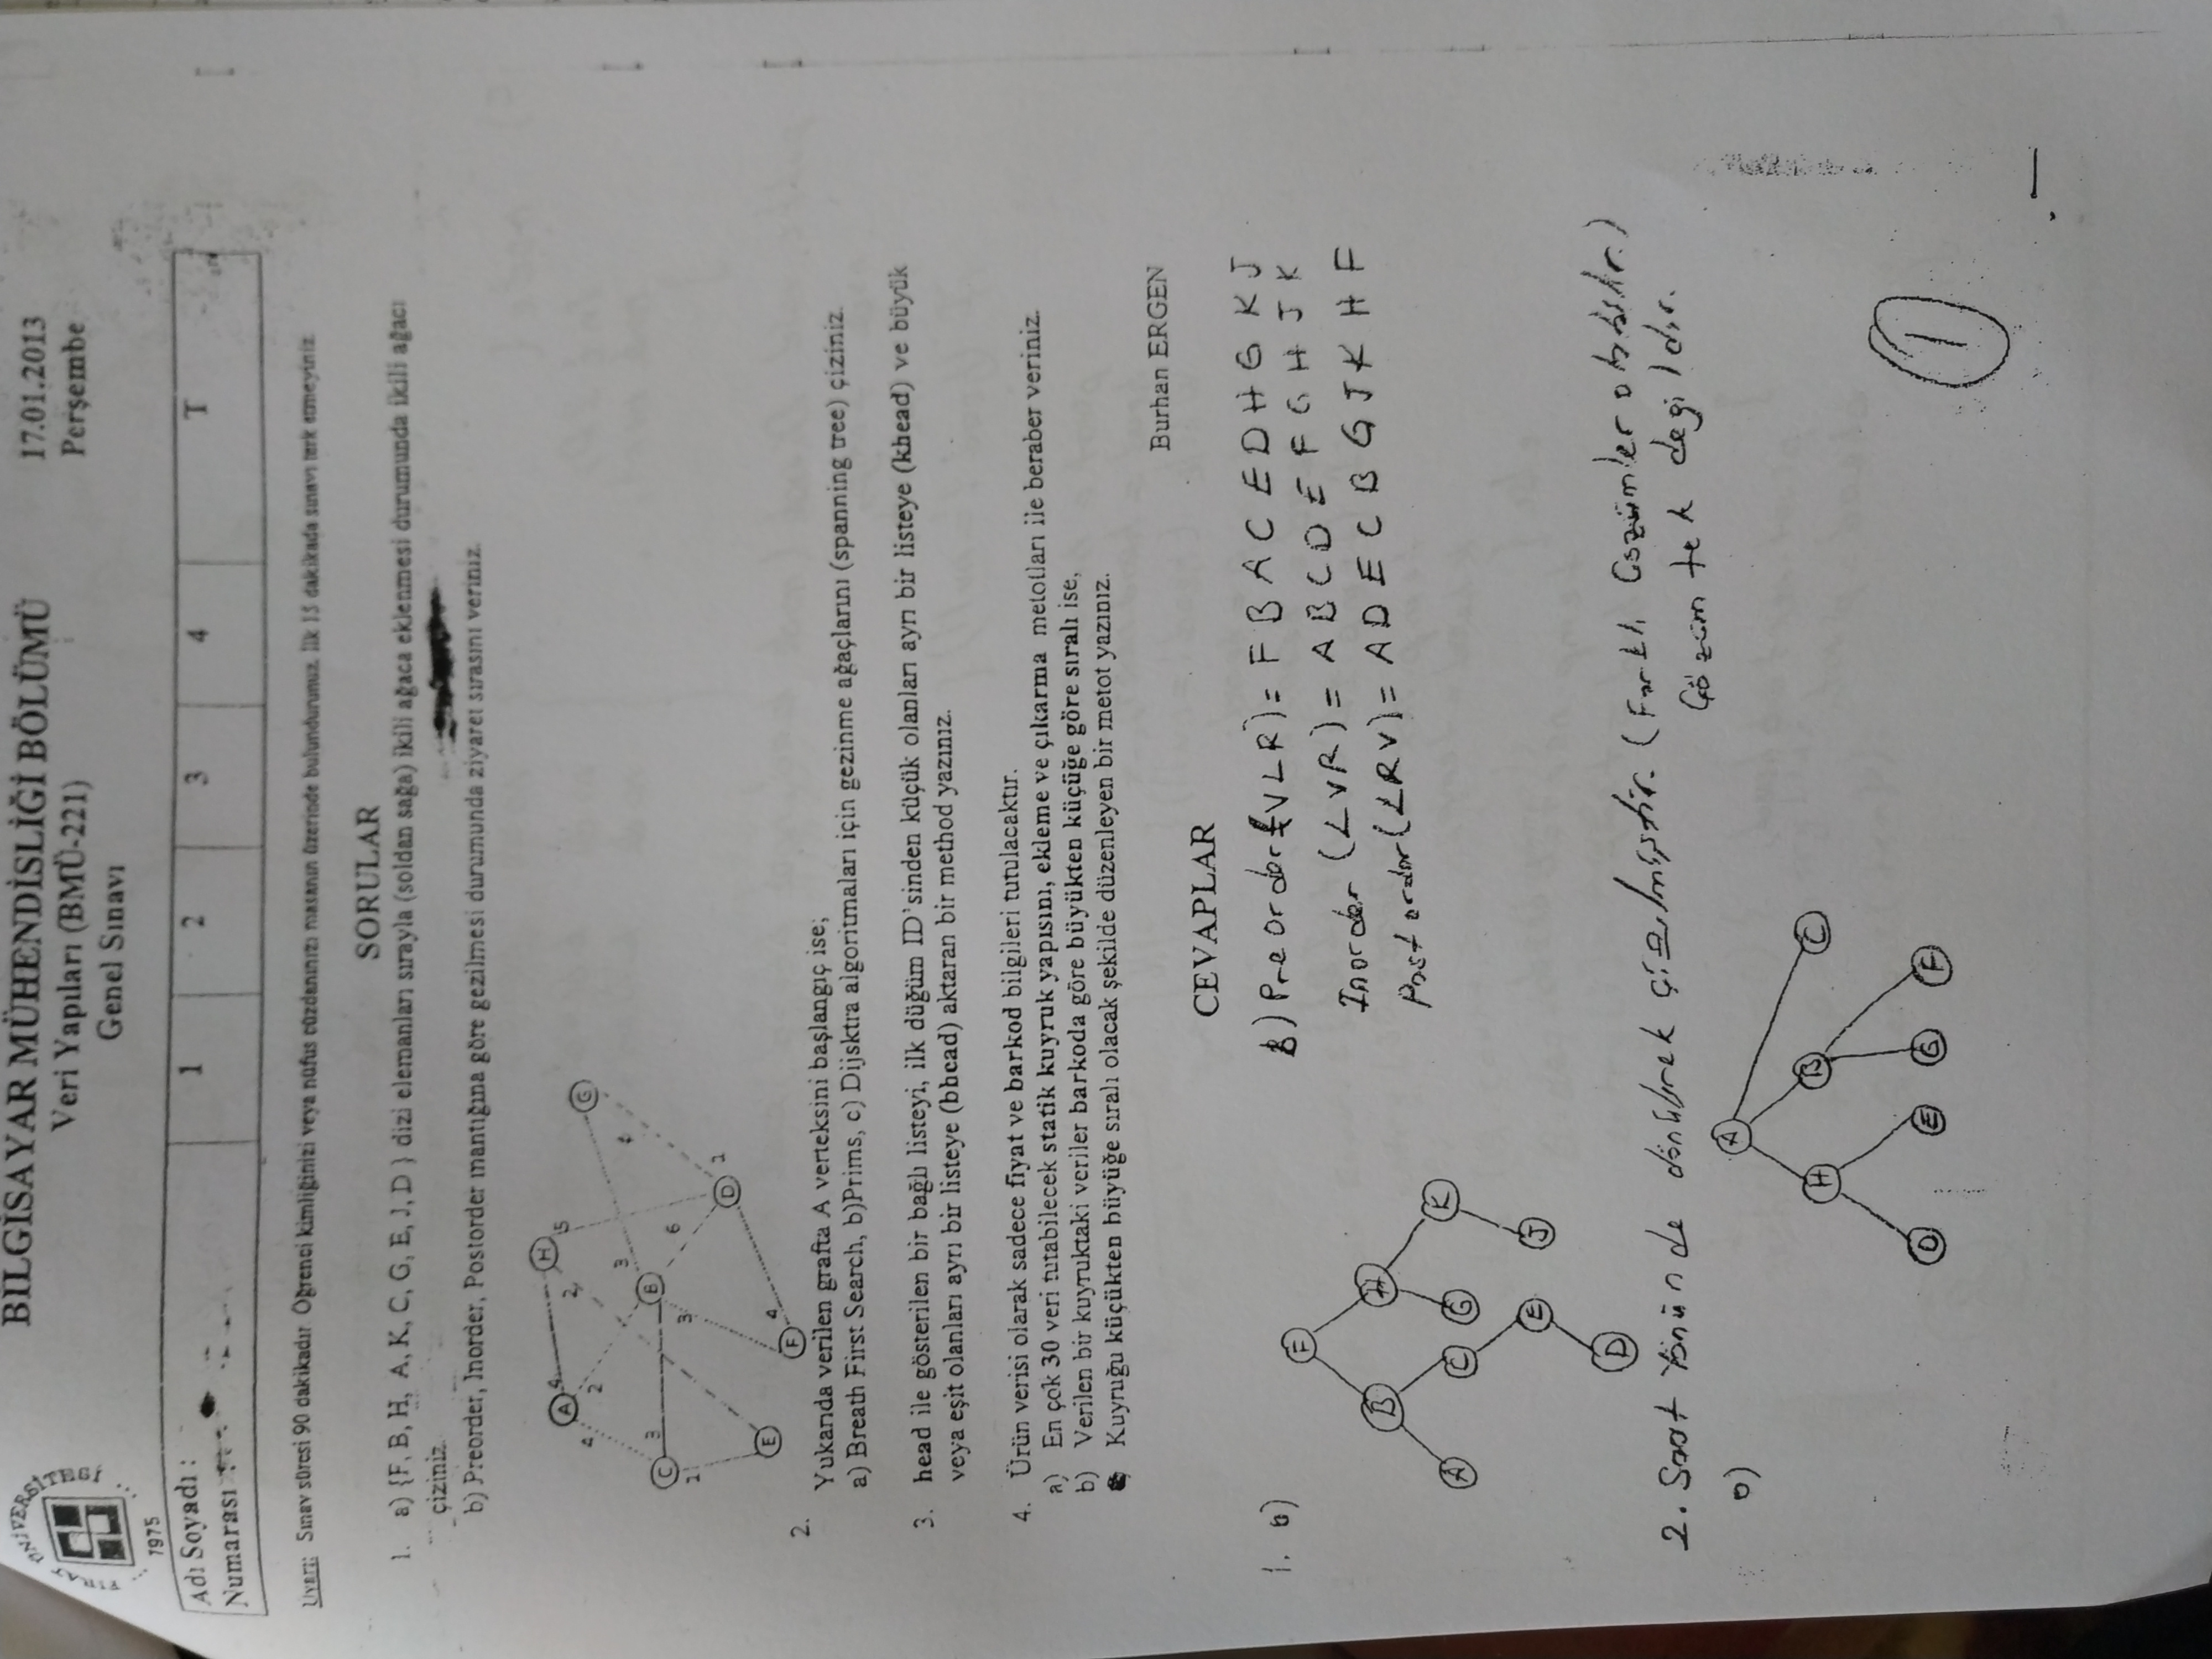 BİLGİSAYAR MÜHENDİSLİĞİ BÖLÜMÜ
17.01.2013
Veri Yapıları (BMÜ-221)
Perşembe
Genel Sınavı
FIRAT ÜNİVERSİTESİ
1975
Adı Soyadı :
1 2 3 4 T
Numarası
Uyarı: Sınav süresi 90 dakikadır. Öğrenci kimliğinizi veya nüfus cüzdanınızı masanın üzerinde bulundurunuz. İlk 15 dakikada sınavı terk etmeyiniz.
SORULAR
1. a) {F, B, H, A, K, C, G, E, J, D } dizi elemanları sırayla (soldan sağa) ikili ağaca eklenmesi durumunda ikili ağacı
çiziniz.
b) Preorder, Inorder, Postorder mantığına göre gezilmesi durumunda ziyaret sırasını veriniz.
A 4 H
4 2 2 5 G
3 4
C 3 B
2 3 6
D 2
E
F 4
2.
Yukarıda verilen grafta A verteksini başlangıç ise;
a) Breath First Search, b)Prims, c) Dijsktra algoritmaları için gezinme ağaçlarını (spanning tree) çiziniz.
3. head ile gösterilen bir bağlı listeyi, ilk düğüm ID'sinden küçük olanları ayrı bir listeye (khead) ve büyük
veya eşit olanları ayrı bir listeye (bhead) aktaran bir method yazınız.
4. Ürün verisi olarak sadece fiyat ve barkod bilgileri tutulacaktır.
a) En çok 30 veri tutabilecek statik kuyruk yapısını, ekleme ve çıkarma metotları ile beraber veriniz.
b) Verilen bir kuyruktaki veriler barkoda göre büyükten küçüğe göre sıralı ise,
Kuyruğu küçükten büyüğe sıralı olacak şekilde düzenleyen bir metot yazınız.
Burhan ERGEN
CEVAPLAR
1. a)
F
B H
A C G K
E J
D
b) Preorder (VLR) = F B A C E D H G K J
Inorder (LVR) = A B C D E F G H J K
Postorder (LRV) = A D E C B G J K H F
2. Saat Yönünde dönülerek çizilmiştir. (Farklı Çözümler olabilir.)
Çözüm tek değildir.
a)
A
H B C
D E G F
1